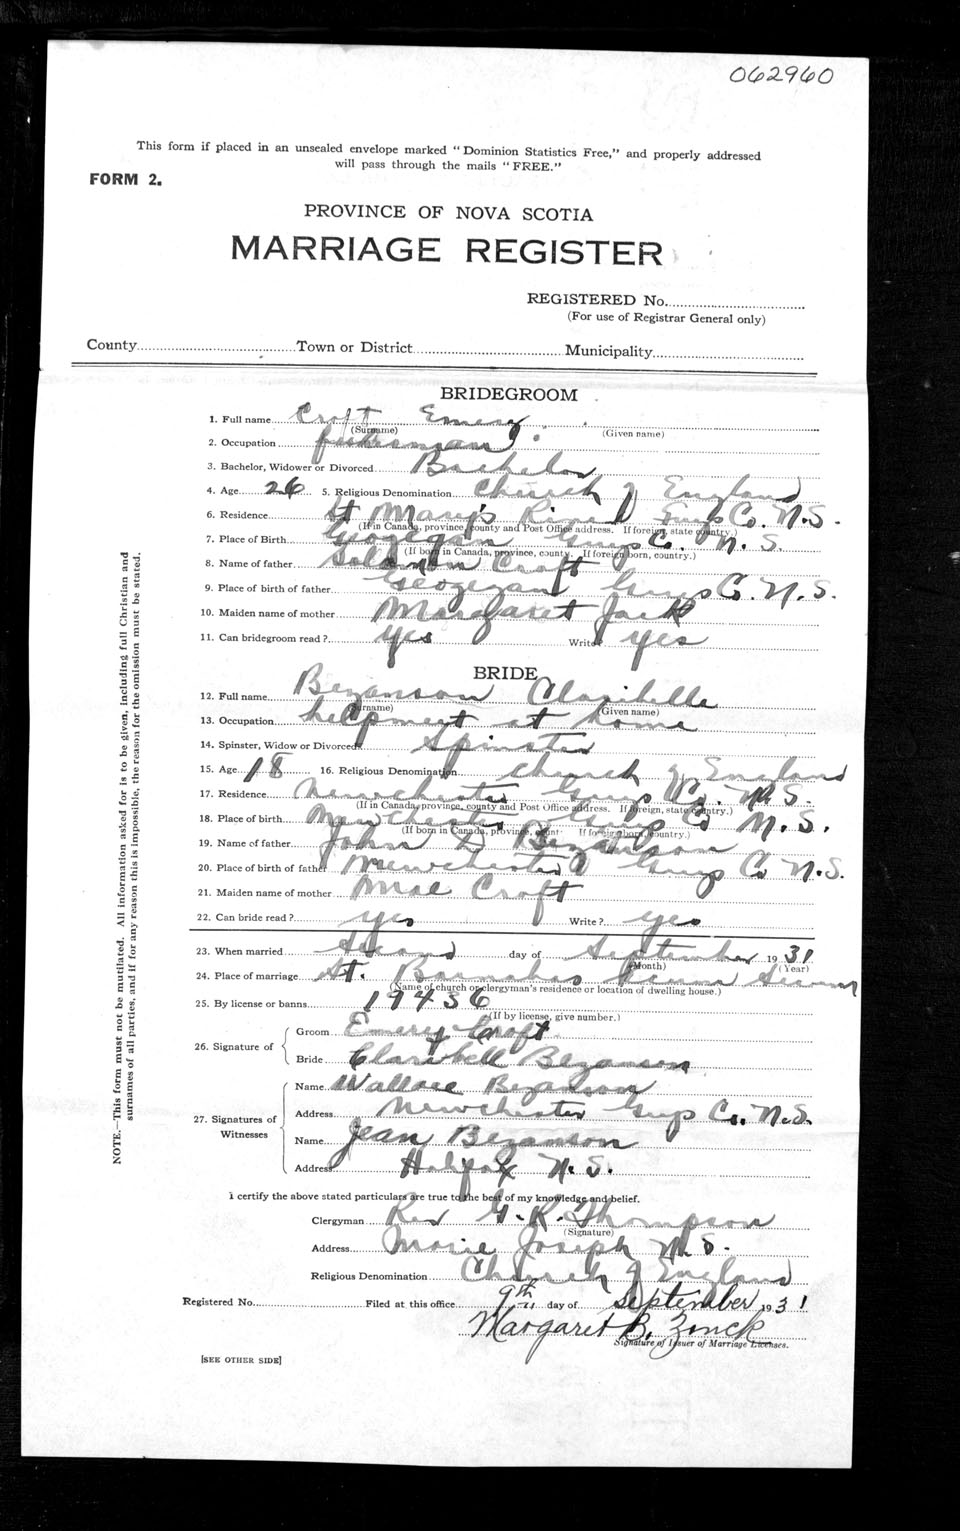 062960
This form if placed in an unsealed envelope marked "Dominion Statistics Free," and properly addressed
will pass through the mails "FREE."
FORM 2.
PROVINCE OF NOVA SCOTIA
MARRIAGE REGISTER
REGISTERED No.
(For use of Registrar General only)
County Town or District Municipality
BRIDEGROOM
1. Full name Croft Emery
(Surname) (Given name)
2. Occupation fisherman
3. Bachelor, Widower or Divorced Bachelor
4. Age 26 5. Religious Denomination Church of England
6. Residence St Mary's River Guys Co. N.S.
(If in Canada, province, county and Post Office address. If foreign, state country.)
7. Place of Birth Geozegan Guys Co. N.S.
(If born in Canada, province, county. If foreign born, country.)
8. Name of father Solomon Croft
9. Place of birth of father Geozegan Guys Co. N.S.
10. Maiden name of mother Margaret Jack
11. Can bridegroom read? yes Write? yes
BRIDE
12. Full name Bezanson Claribelle
(Surname) (Given name)
13. Occupation helpmeet at home
14. Spinster, Widow or Divorced Spinster
15. Age 18 16. Religious Denomination Church of England
17. Residence Newchester Guys Co. N.S.
(If in Canada, province, county and Post Office address. If foreign, state country.)
18. Place of birth Newchester Guys Co N.S.
(If born in Canada, province, county. If foreign born, country.)
19. Name of father John D Bezanson
20. Place of birth of father Newchester Guys Co N.S.
21. Maiden name of mother Mae Croft
22. Can bride read? yes Write? yes
23. When married Second day of September 1931
(Month) (Year)
24. Place of marriage St. Barnabas
(Name of church or clergyman's residence or location of dwelling house.)
25. By license or banns 19436
(If by license, give number.)
26. Signature of
Groom Emery Croft
Bride Claribell Bezanson
27. Signatures of Witnesses
Name Wallace Bezanson
Address Newchester Guys Co. N.S.
Name Jean Bezanson
Address Halifax N.S.
I certify the above stated particulars are true to the best of my knowledge and belief.
Clergyman Rev G. R. Thompson
(Signature)
Address Marie Joseph N.S.
Religious Denomination Church of England
Registered No. Filed at this office 9th day of September 1931
Margaret B. Zinck
Signature of Issuer of Marriage Licenses.
[SEE OTHER SIDE]
NOTE.—This form must not be mutilated. All information asked for is to be given, including full Christian and
surnames of all parties, and if for any reason this is impossible, the reason for the omission must be stated.